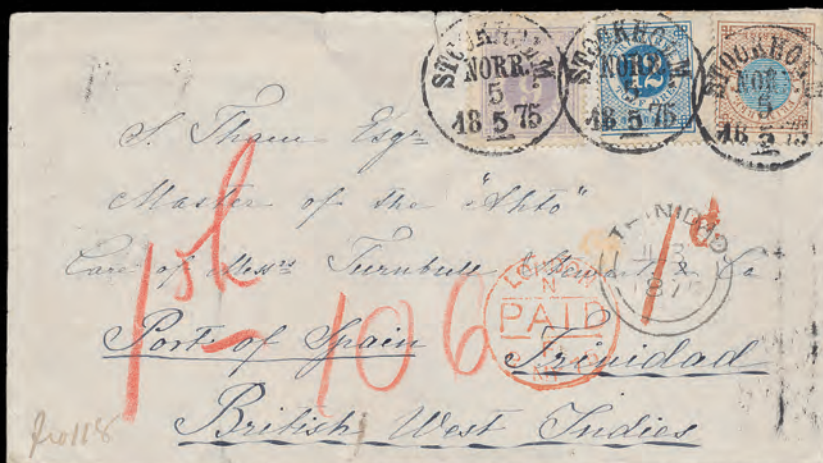 STOCKHOLM
NORR.
5
18 5 75
STOCKHOLM
NORR.
5
18 5 75
STOCKHOLM
NORR.
5
18 5 75
12
S. Tham Esqre
Master of the "Ahto"
Care of Messrs Turnbull Stewart & Co
Port of Spain Trinidad
British West Indies
1 sh
106
1d
LONDON
N
PAID
TRINIDAD